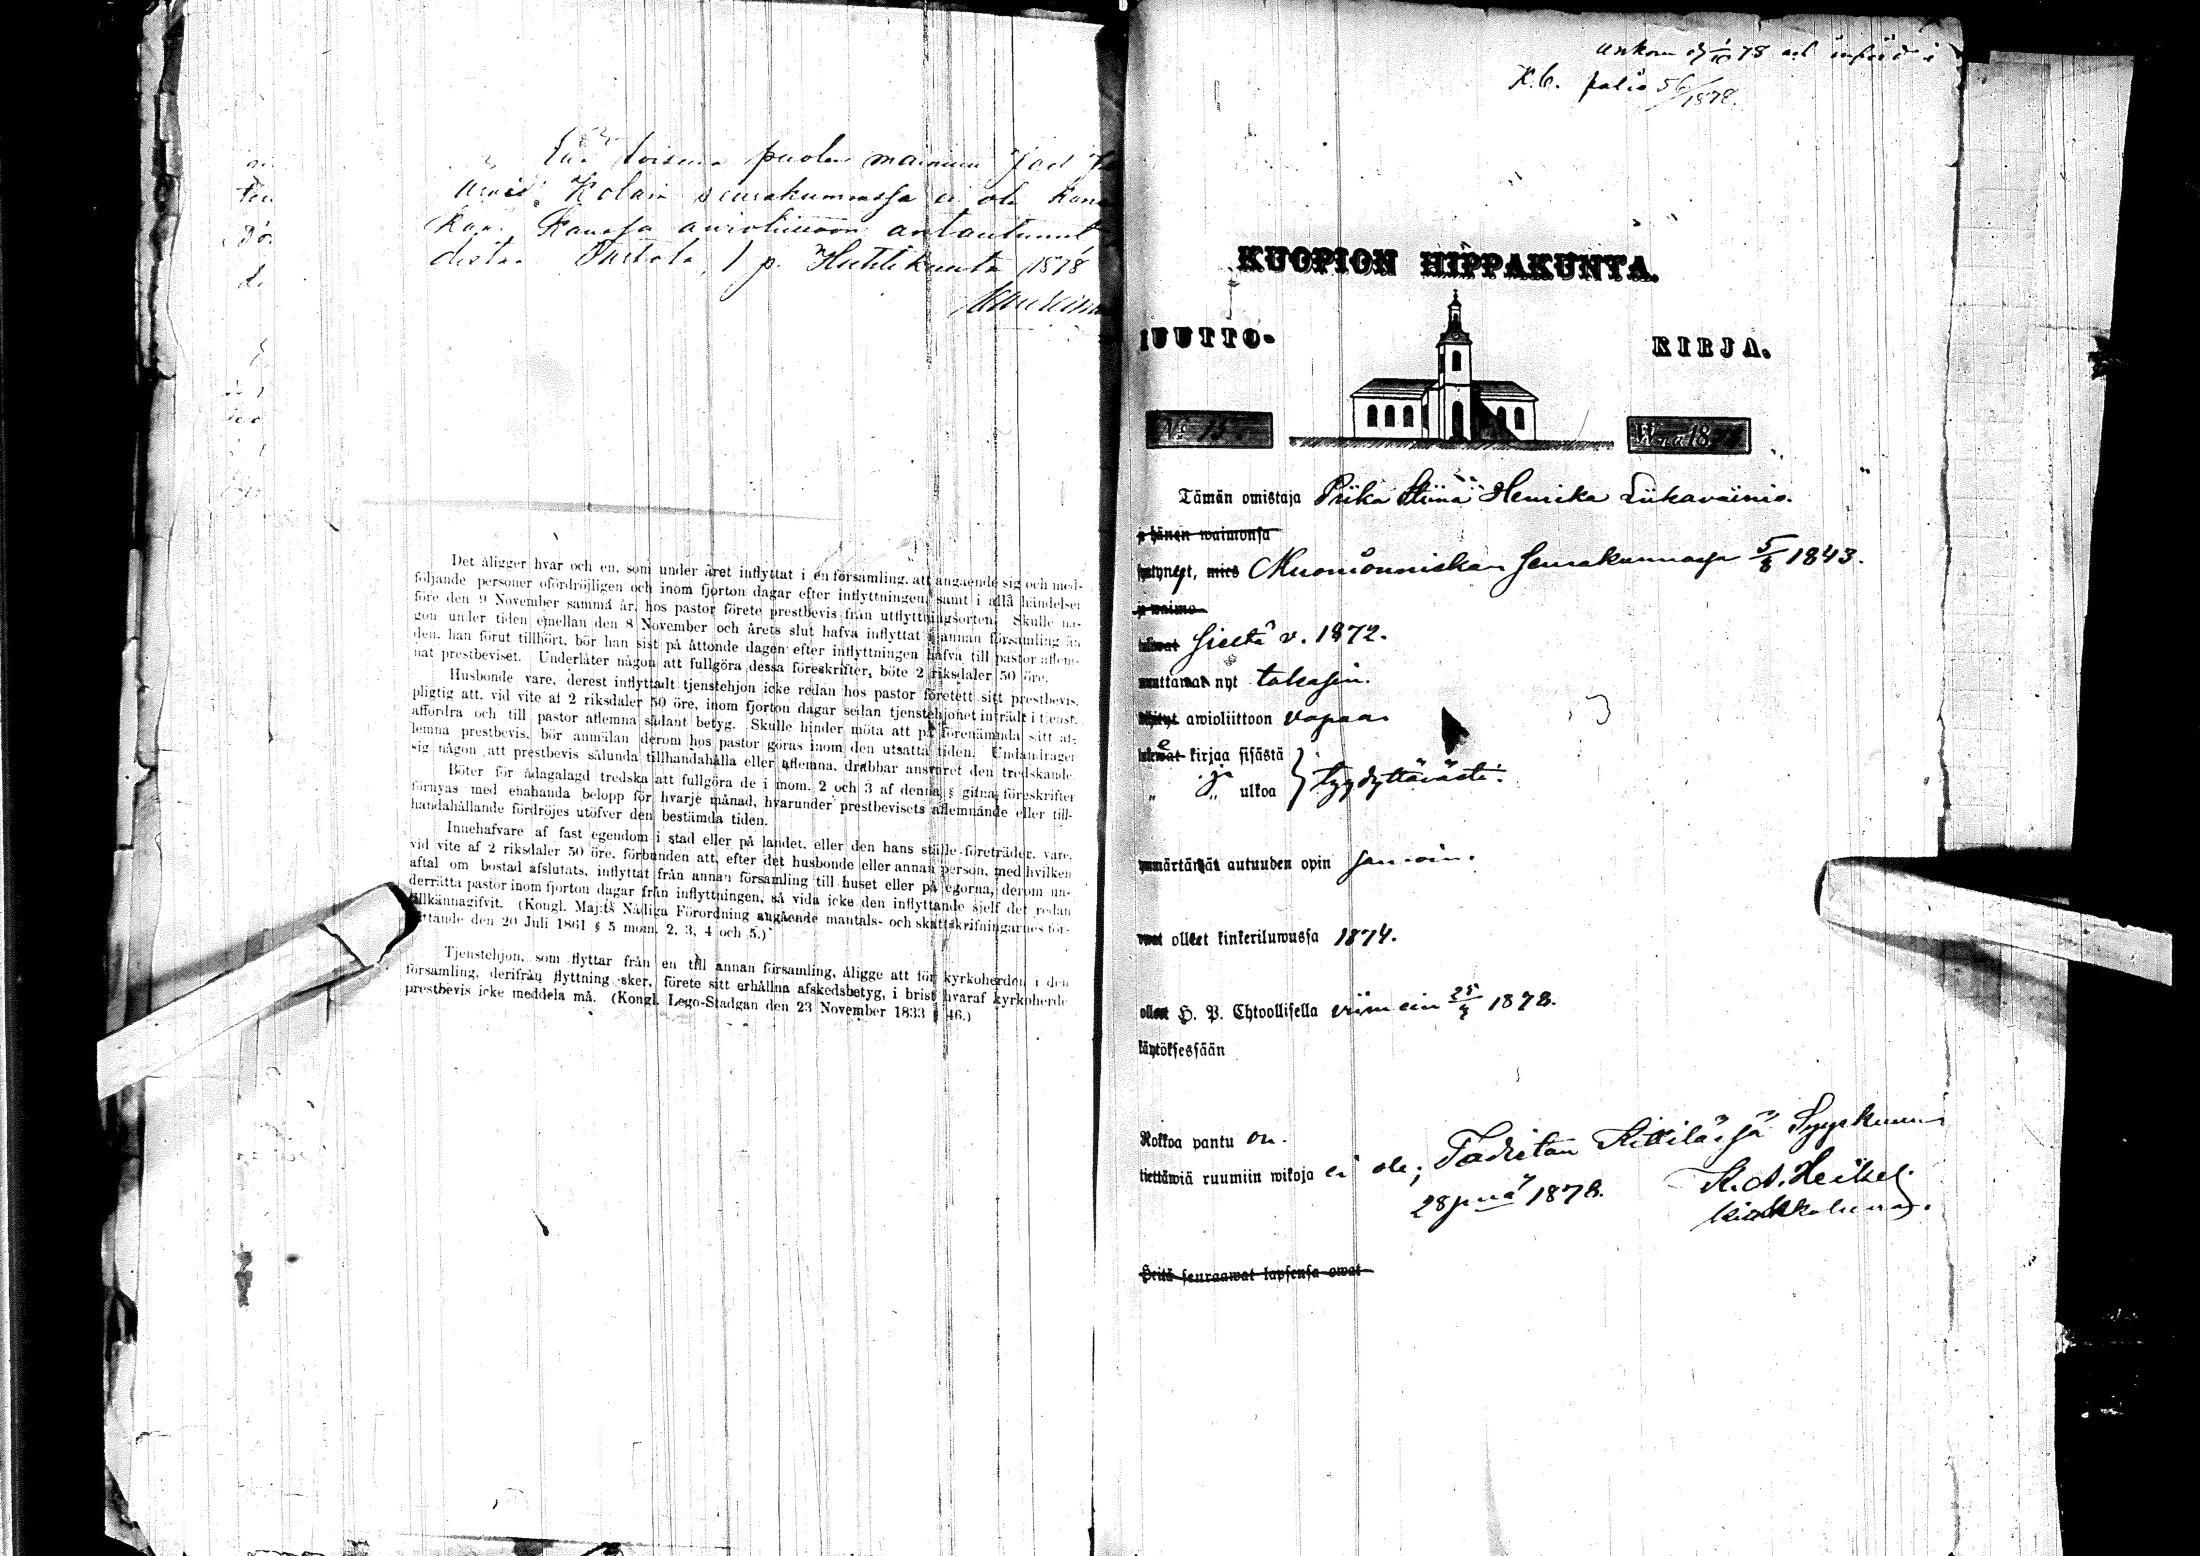 toisella puolen
Kolarin seurakunnassa ei ole
Kanssa avioliittoon antautunut
distaa 1 p. Huhtikuuta 1878
Det åligger hvar och en, som under året inflyttat i en församling, att angående sig och med-
följande personer ofördröjligen och inom fjorton dagar efter inflyttningen, samt i allå händelser
före den 9 November samma år, hos pastor förete prestbevis från utflyttningsorten. Skulle nå-
gon under tiden emellan den 8 November och årets slut hafva inflyttat i annan församling än
den, han förut tillhört, bör han sist på åttonde dagen efter inflyttningen hafva till pastor aflem-
nat prestbeviset. Underlåter någon att fullgöra dessa föreskrifter, böte 2 riksdaler 50 öre.
Husbonde vare, derest inflyttadt tjenstehjon icke redan hos pastor företett sitt prestbevis,
pligtig att, vid vite af 2 riksdaler 50 öre, inom fjorton dagar sedan tjenstehjonet inträdt i tjenst,
affordra och till pastor aflemna sådant betyg. Skulle hinder möta att på förenämnda sätt af-
lemna prestbevis, bör anmälan derom hos pastor göras inom den utsatta tiden. Undandrager
sig någon att prestbevis sålunda tillhandahålla eller aflemna, drabbar ansvaret den tredskande.
Böter för ådagalagd tredska att fullgöra de i mom. 2 och 3 af denna § gifna föreskrifter
förnyas med enahanda belopp för hvarje månad, hvarunder prestbevisets aflemnande eller till-
handahållande fördröjes utöfver den bestämda tiden.
Innehafvare af fast egendom i stad eller på landet, eller den hans ställe företräder, vare,
vid vite af 2 riksdaler 50 öre, förbunden att, efter det husbonde eller annan person, med hvilken
aftal om bostad afslutats, inflyttat från annan församling till huset eller på egorna, derom un-
derrätta pastor inom fjorton dagar från inflyttningen, så vida icke den inflyttande sjelf det redan
tillkännagifvit. (Kongl. Maj:ts Nådiga Förordning angående mantals- och skattskrifningarnes för-
rättande den 20 Juli 1861 § 5 mom. 2, 3, 4 och 5.)
Tjenstehjon, som flyttar från en till annan församling, åligge att för kyrkoherden i den
församling, derifrån flyttning sker, förete sitt erhållna afskedsbetyg, i brist hvaraf kyrkoherde
prestbevis icke meddela må. (Kongl. Lego-Stadgan den 23 November 1833 § 46.)
ankom 78 införd i
K.b. folio 56/1878.
KUOPION HIPPAKUNTA.
UUTTO- KIRJA.
No 15 W:na 187
Tämän omistaja Priita Stiina Henrika Liikavainio.
a hänen waimonsa
syntynyt, mies Muonionniskan seurakunnassa 1843.
ja waimo
tulewat sieltä v. 1872.
muuttawat nyt takasin.
awioliittoon vapaa.
lukewat kirjaa sisästä
" ja " ulkoa } tyydyttävästi.
ymmärtäwät autuuden opin samoin.
owat olleet kinkeriluwussa 1874.
olleet H. P. Ehtoollisella viimein 1878.
käytöksessään
Rokkoa pantu on.
tiettäwiä ruumiin wikoja ei ole; Todistan Kittilässä Syyskuun
28 p:nä 1878. K. A. Heikel.
Heitä seuraawat lapsensa owat